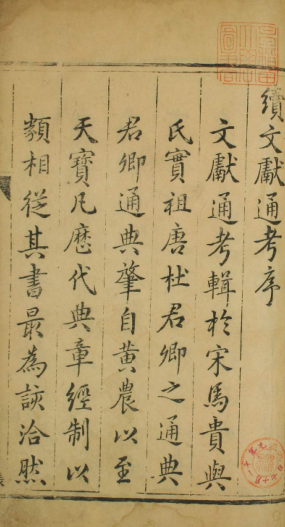 續文獻通考序
文獻通考輯於宋馬貴與
氏實祖唐杜君卿之通典
君卿通典肇自黃農以至
天寶凡歷代典章經制以
類相從其書最為該洽然